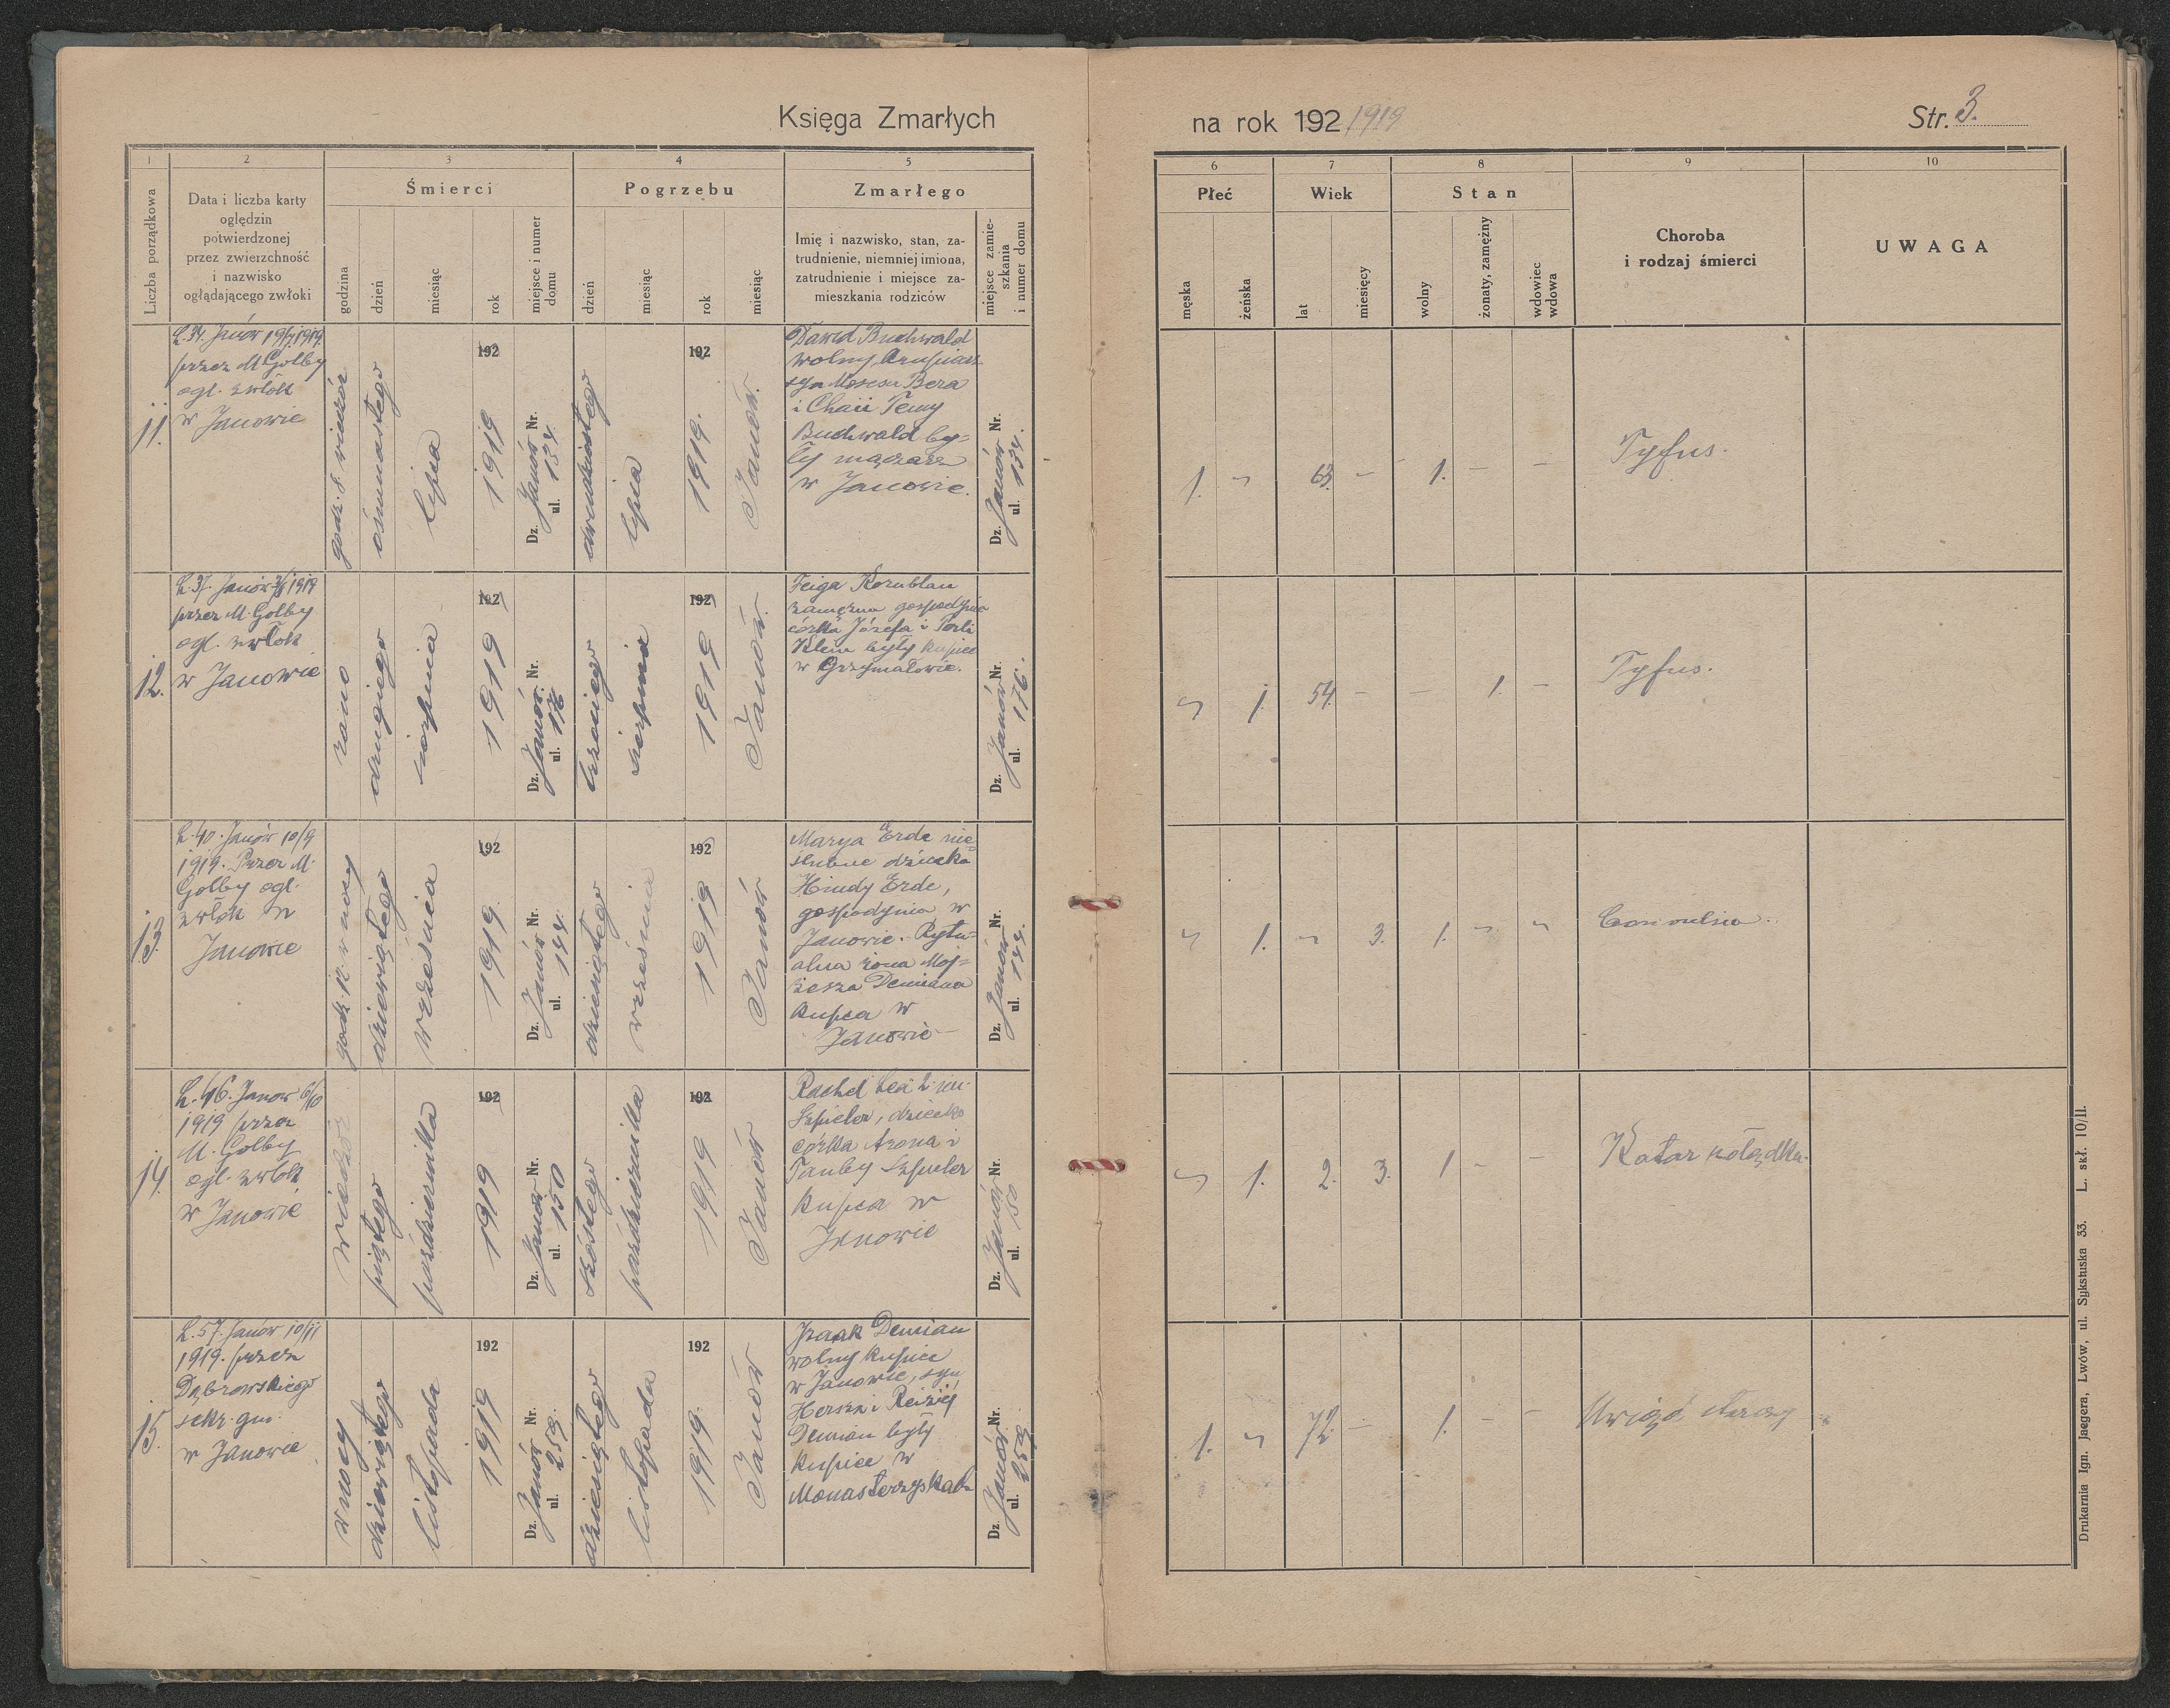 Księga Zmarłych
na rok 192 1919
Str. 3.
1
2
3
4
5
6
7
8
9
10
Liczba porządkowa
Data i liczba karty
oględzin
potwierdzonej
przez zwierzchność
i nazwisko
oglądającego zwłoki
Śmierci
godzina
dzień
miesiąc
rok
miejsce i numer
domu
Pogrzebu
dzień
miesiąc
rok
miesiąc
Zmarłego
Imię i nazwisko, stan, za-
trudnienie, niemniej imiona,
zatrudnienie i miejsce za-
mieszkania rodziców
miejsce zamie-
szkania
i numer domu
Płeć
męska
żeńska
Wiek
lat
miesięcy
Stan
wolny
żonaty, zamężny
wdowiec
wdowa
Choroba
i rodzaj śmierci
UWAGA
11.
L. 34. Janów 19/7 1919.
przez M Golby
ogl. zwłok
w Janowie
godz. 8. wieczór
ósmnastego
lipca
192
1919
Dz. Janów Nr.
ul. 134.
dwudziestego
lipca
192
1919.
Janów.
Dawid Buchwald
wolny
syn Mosesa Bera
i Chaii Temy
Buchwald by-
ły
w Janowie.
Dz. Janów Nr.
ul. 134.
1. 63. — 1. — —
Tyfus.
12.
L. 37. Janów 3/8 1919
przez M. Golby
ogl. zwłok
w Janowie
rano
drugiego
sierpnia
192
1919
Dz. Janów. Nr.
ul. 176
trzeciego
sierpnia
192
1919
Janów.
Feiga Kornblau
zamężna gospodynia
córka Józefa i Perli
Klein były kupiec
w Grzymałowie.
Dz. Janów Nr.
ul. 176.
1. 54. — — 1. —
Tyfus.
13.
L. 40. Janów 10/9
1919. Przez M.
Golby ogl.
zwłok w
Janowie
godz. 12. w nocy
dziewiątego
września
192
1919.
Dz. Janów Nr.
ul. 144.
dziesiątego
września
192
1919
Janów
Marya Erde nie-
ślubne dziecko
Hindy Erde,
gospodynia w
Janowie. Rytu-
alna żona Moj-
żesza Demiana
kupca w
Janowie
Dz. Janów Nr.
ul. 144.
1. 3. 1.
14.
L. 46. Janow 6/10
1919 przez
M. Golby
ogl. zwłok
w Janowie
wieczór
piątego
października
192
1919
Dz. Janów Nr.
ul. 150
szóstego
października
192
1919
Janów
Rachel Lea 2 im.
dziecko
córka Arona i
Tauby
kupca w
Janowie
Dz. Janów Nr.
ul. 150
1. 2. 3. 1 — —
Katar żołądka.
15.
L. 57. Janów 10/11
1919. przez
Dąbrowskiego
sekr. gm.
w Janowie
w nocy
dziewiątego
listopada
192
1919
Dz. Janów Nr.
ul. 259.
dziesiątego
listopada
192
1919.
Janów
Izaak Demian
wolny kupiec
w Janowie, syn
Hersza i Reizji
Demian były
kupiec w
Monasterzyskach
Dz. Janów Nr.
ul. 259
1. 72. — 1. — —
Uwiąd starczy
Drukarnia Ign. Jaegera, Lwów, ul. Sykstuska 33. L. skł. 10/II.